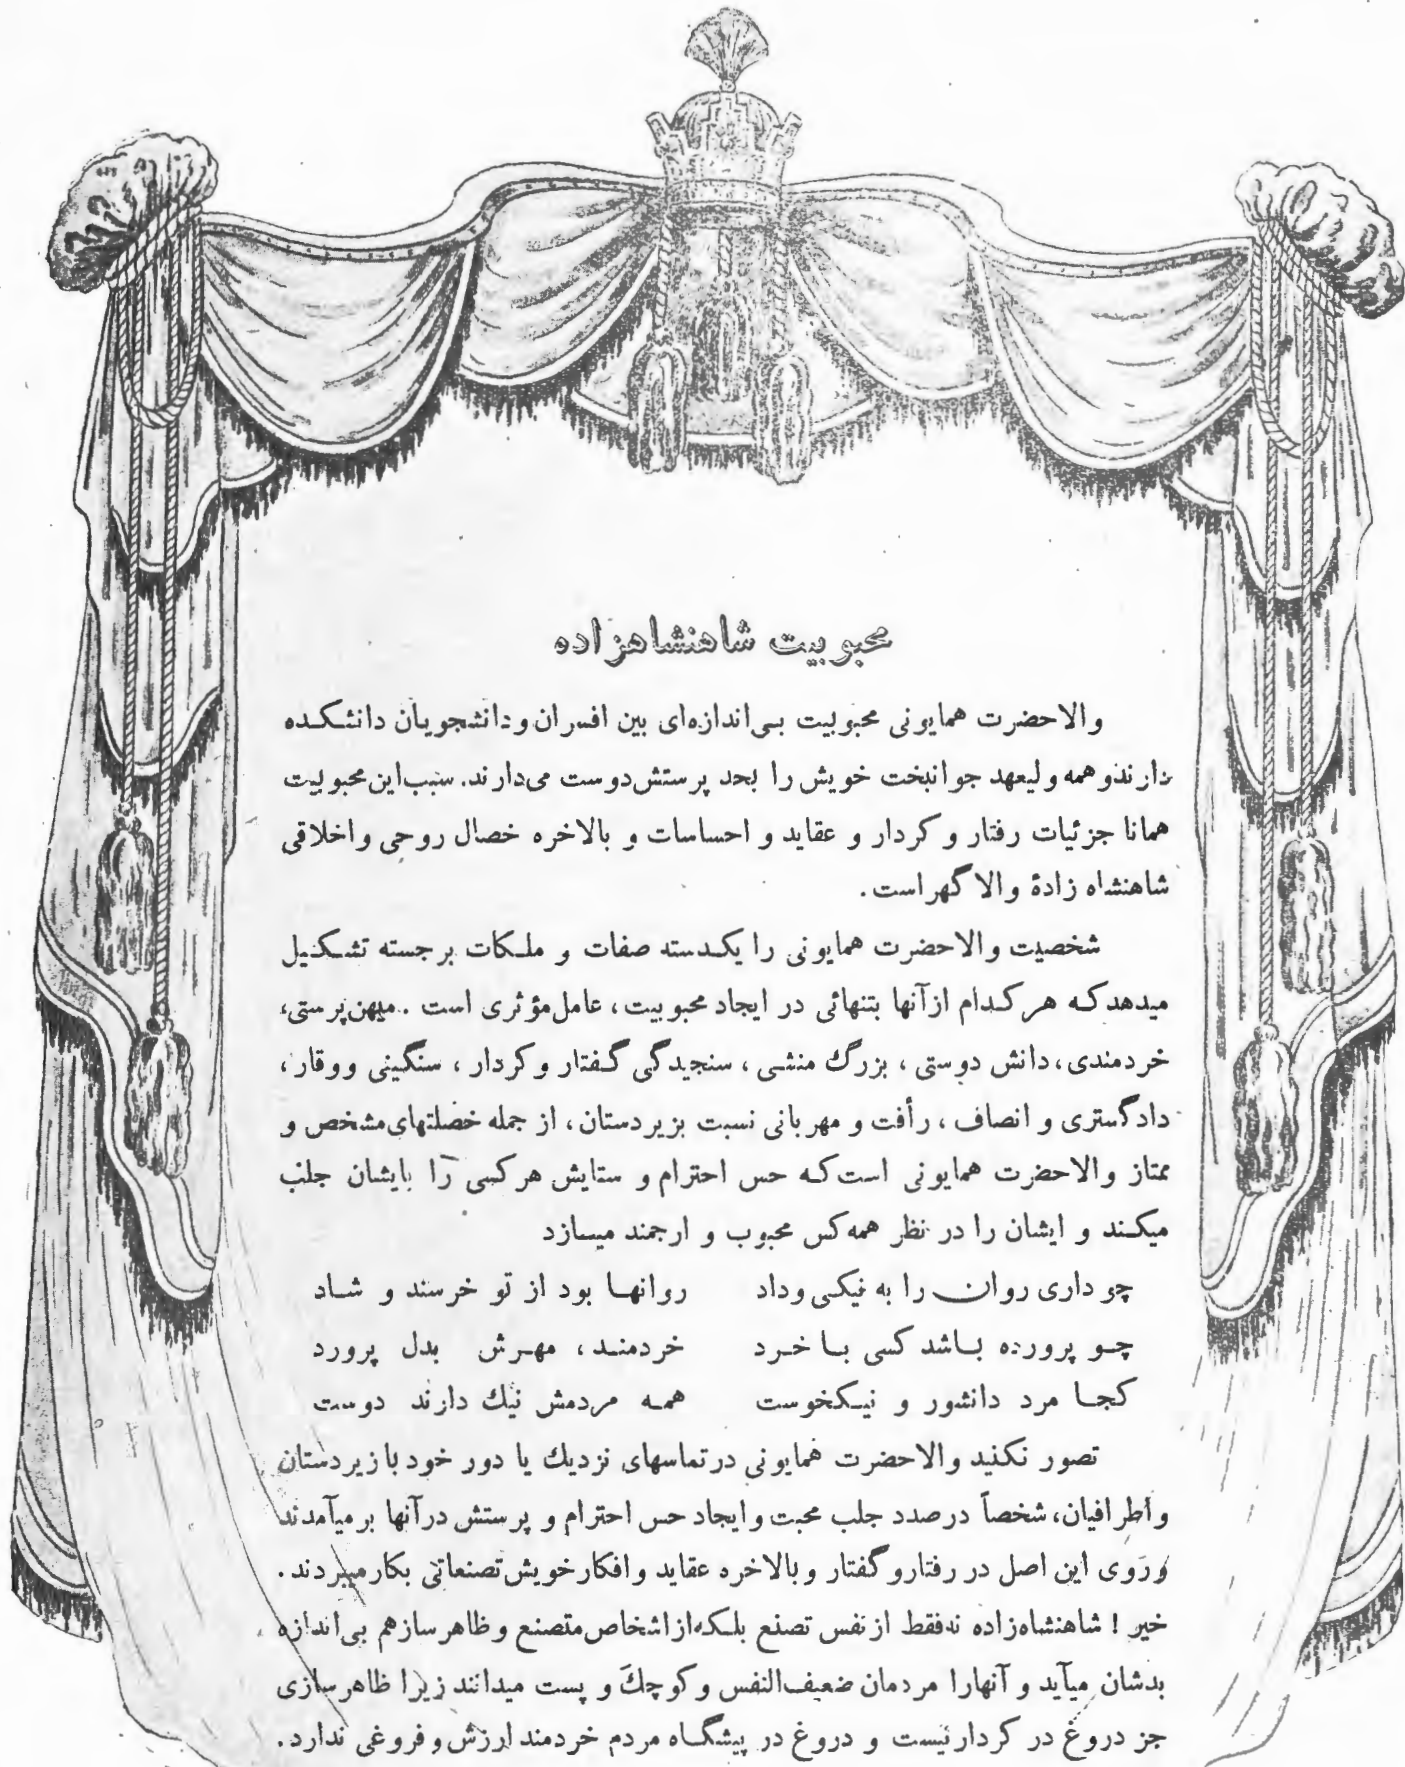 محبوبیت شاهنشاهزاده
والاحضرت همایونی محبوبیت بی‌اندازه‌ای بین افسران و دانشجویان دانشکده
دارند و همه ولیعهد جوانبخت خویش را بحد پرستش دوست می‌دارند. سبب این محبوبیت
همانا جزئیات رفتار و کردار و عقاید و احساسات و بالاخره خصال روحی و اخلاقی
شاهنشاه زادهٔ والا گهر است.
شخصیت والاحضرت همایونی را یکدسته صفات و ملکات برجسته تشکیل
میدهد که هر کدام از آنها بتنهائی در ایجاد محبوبیت، عامل مؤثری است. میهن‌پرستی،
خردمندی، دانش دوستی، بزرگ منشی، سنجیدگی گفتار و کردار، سنگینی و وقار،
دادگستری و انصاف، رأفت و مهربانی نسبت بزیردستان، از جمله خصلتهای مشخص و
ممتاز والاحضرت همایونی است که حس احترام و ستایش هر کسی را بایشان جلب
میکند و ایشان را در نظر همه کس محبوب و ارجمند میسازد
چو داری روان را به نیکی و داد روانها بود از تو خرسند و شاد
چو پرورده باشد کسی با خرد خردمند، مهرش بدل پرورد
کجا مرد دانشور و نیکخوست همه مردمش نیك دارند دوست
تصور نکنید والاحضرت همایونی در تماسهای نزدیك یا دور خود با زیردستان
و اطرافیان، شخصاً درصدد جلب محبت و ایجاد حس احترام و پرستش در آنها برمیآمدند
و روی این اصل در رفتار و گفتار و بالاخره عقاید و افکار خویش تصنعاتی بکار میبردند.
خیر! شاهنشاه‌زاده نه‌فقط از نفس تصنع بلکه از اشخاص متصنع و ظاهرساز هم بی‌اندازه
بدشان میآید و آنهارا مردمان ضعیف‌النفس و کوچك و پست میدانند زیرا ظاهرسازی
جز دروغ در کردار نیست و دروغ در پیشگاه مردم خردمند ارزش و فروغی ندارد.